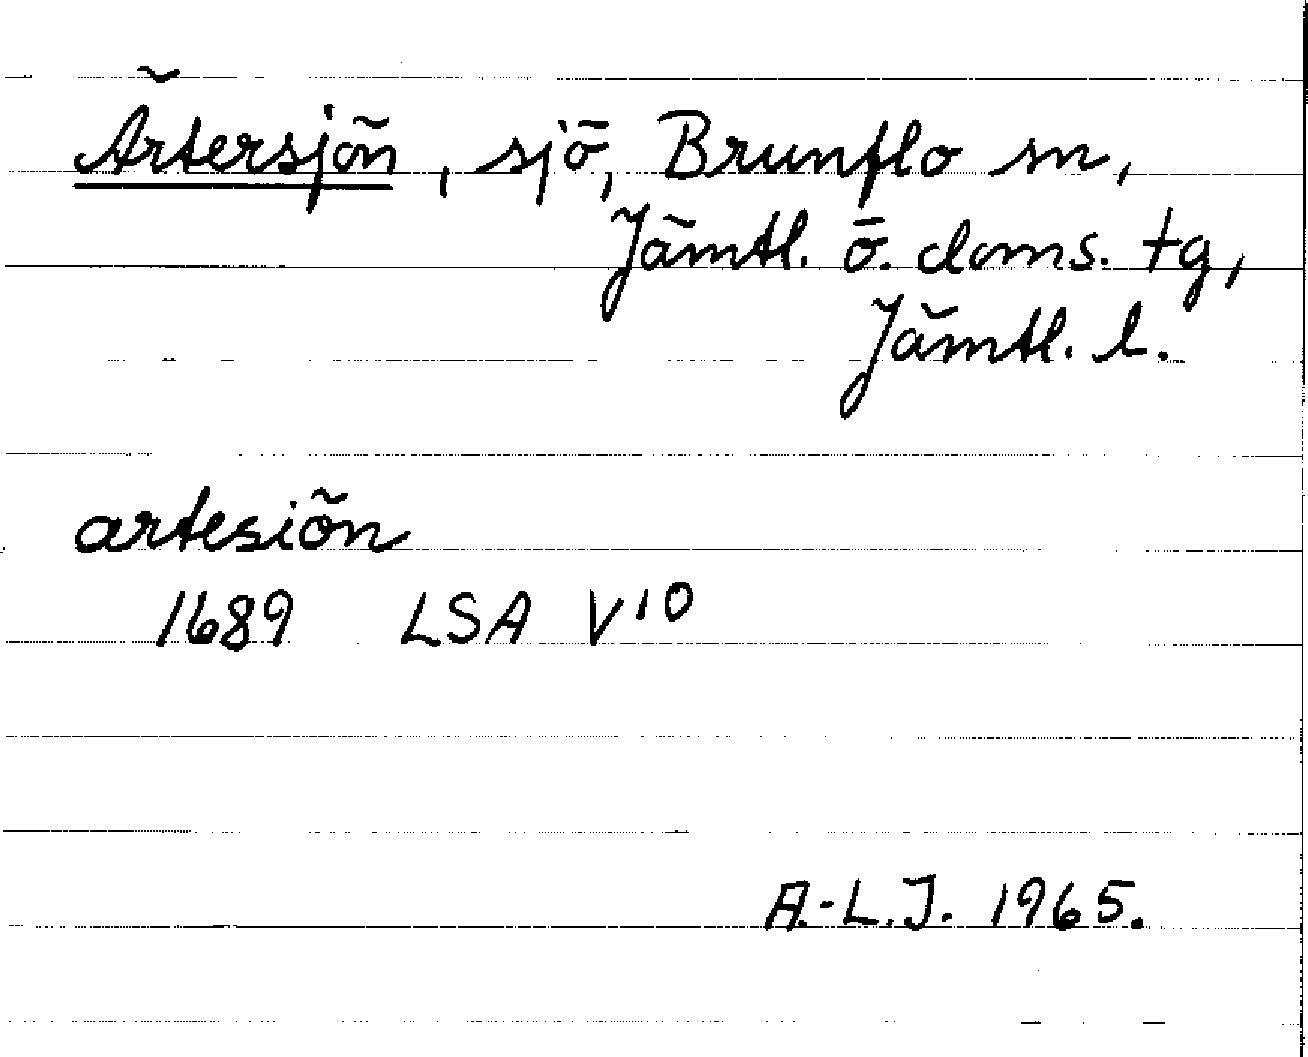 Ärtersjön, sjö, Brunflo sn,
Jämtl. ö. doms. tg,
Jämtl. l.
artesiön
1689 LSA V10
A.-L.J. 1965.